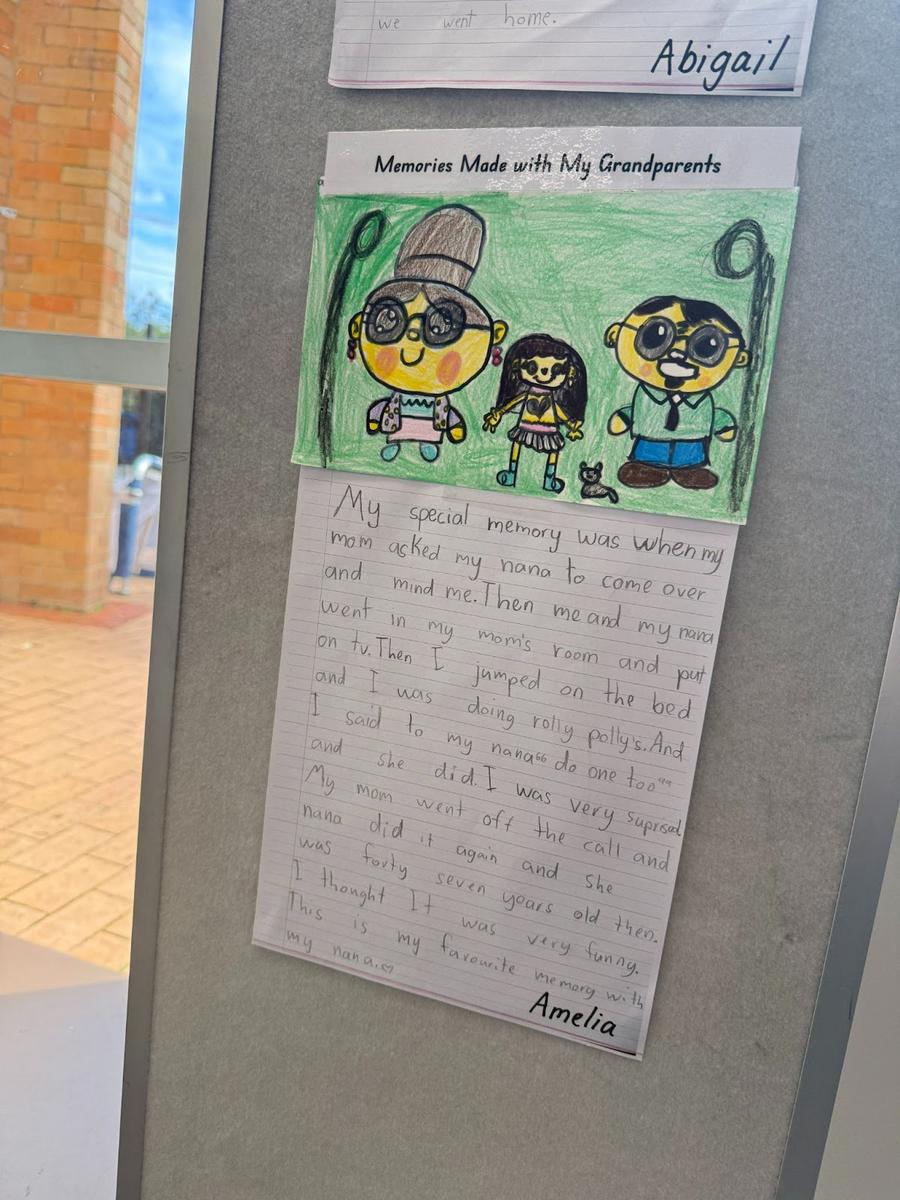 we went home.
Abigail
Memories Made with My Grandparents
My special memory was when my
mom acked my nana to come over
and mind me. Then me and my nana
went in my mom's room and put
on tv. Then I jumped on the bed
and I was doing rolly polly's. And
I said to my nana“ do one too““
and she did. I was very suprised
My mom went off the call and
nana did it again and she
was forty seven years old then.
I thought It was very funny.
This is my favourite memory with
my nana.♡
Amelia